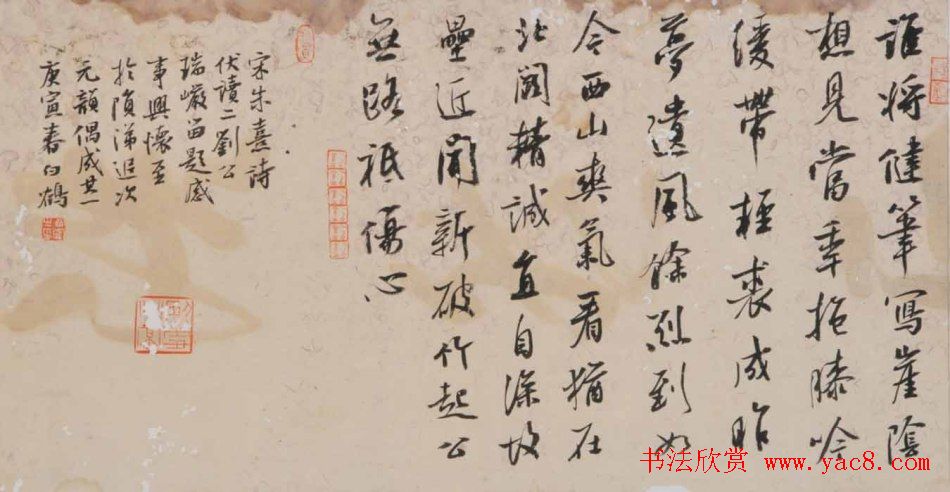 誰将健筆写崖陰
想見當年抱膝吟
緩帶輕裘成昨
夢遺風餘烈到如
今西山爽氣看猶在
北闕精誠直自深故
壘近聞新破竹起公
無路祇傷心
宋朱熹詩
伏讀二劉公
瑞巖留題感
事興懷至
於隕涕追次
元韻偶成其一
庚寅春白鶴
书法欣赏 www.yac8.com